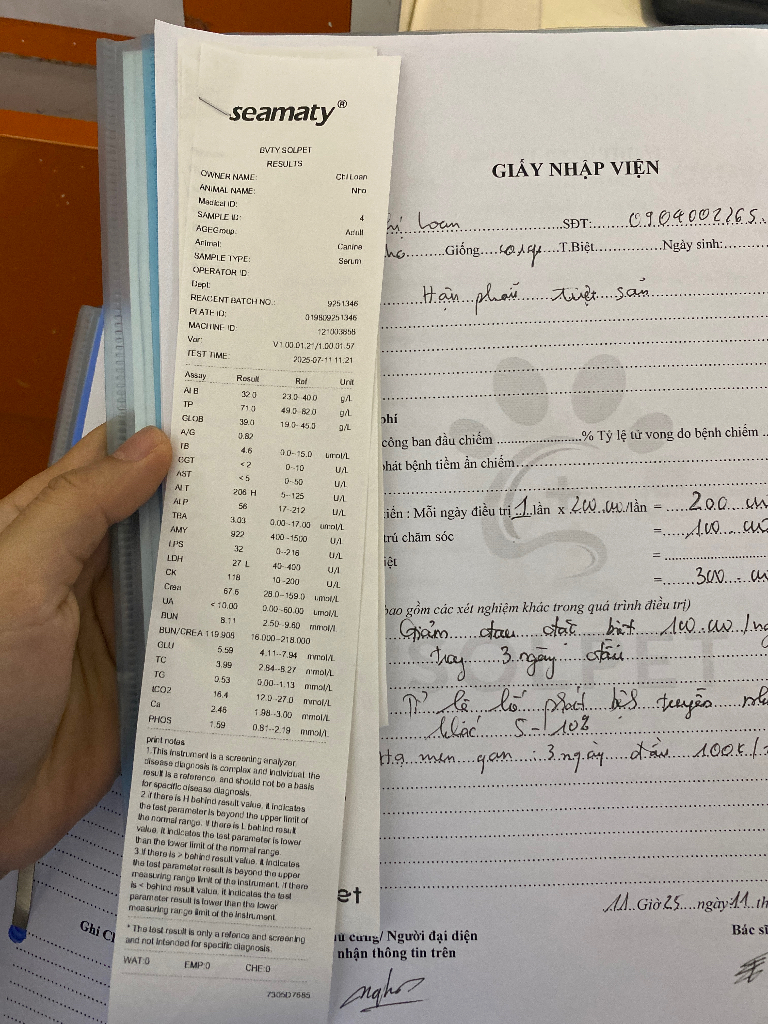 seamaty®
BVTY SOLPET
RESULTS
OWNER NAME: Chi Loan
ANIMAL NAME: Nho
Medical ID:
SAMPLE ID: 4
AGEGroup: Adult
Animal: Canine
SAMPLE TYPE: Serum
OPERATOR ID:
Dept:
REAGENT BATCH NO.: 9251346
PLATE ID: 019809251346
MACHINE ID: 121003858
Var: V1.00.01.21/1.00.01.57
TEST TIME: 2025-07-11 11:21
Assay Result Ref Unit
ALB 32.0 23.0--40.0 g/L
TP 71.0 49.0--82.0 g/L
GLOB 39.0 19.0--45.0 g/L
A/G 0.82
TB 4.6 0.0--15.0 umol/L
GGT <2 0--10 U/L
AST <5 0--50 U/L
ALT 206 H 5--125 U/L
ALP 56 17--212 U/L
TBA 3.03 0.00--17.00 umol/L
AMY 922 400--1500 U/L
LPS 32 0--216 U/L
LDH 27 L 40--400 U/L
CK 118 10--200 U/L
Crea 67.6 28.0--159.0 umol/L
UA <10.00 0.00--60.00 umol/L
BUN 8.11 2.50--9.60 mmol/L
BUN/CREA 119.908 16.000--218.000
GLU 5.59 4.11--7.94 mmol/L
TC 3.99 2.84--8.27 mmol/L
TG 0.53 0.00--1.13 mmol/L
tCO2 16.4 12.0--27.0 mmol/L
Ca 2.46 1.98--3.00 mmol/L
PHOS 1.59 0.81--2.19 mmol/L
print notes
1.This instrument is a screening analyzer.
disease diagnosis is complex and individual, the
result is a reference, and should not be a basis
for specific disease diagnosis.
2.if there is H behind result value, it indicates
the test parameter is beyond the upper limit of
the normal range. If there is L behind result
value, it indicates the test parameter is lower
than the lower limit of the normal range.
3.If there is > behind result value, it indicates
the test parameter result is beyond the upper
measuring range limit of the instrument, if there
is < behind result value, it indicates the test
parameter result is lower than the lower
measuring range limit of the instrument.
* The test result is only a refence and screening
and not intended for specific diagnosis.
WAT:0 EMP:0 CHE:0
7305D7685
GIẤY NHẬP VIỆN
Loan SĐT: 0904002265
Giống T.Biệt Ngày sinh:
Hạn phẫu triệt sản
phí
công ban đầu chiếm % Tỷ lệ tử vong do bệnh chiếm
phát bệnh tiềm ẩn chiếm
: Mỗi ngày điều trị 1 lần x 200.000/lần = 200
trú chăm sóc = 100
iệt =
= 300
bao gồm các xét nghiệm khác trong quá trình điều trị)
Giảm đau đặc biệt 100.000/
3 ngày đầu
Tỉ lệ phát bệnh truyền
khác 5-10%
Hạ men gan: 3 ngày đầu 100k/
11 Giờ 25 ngày 11 th
Ghi Ch
et
cưng/ Người đại diện
nhận thông tin trên
Bác sĩ